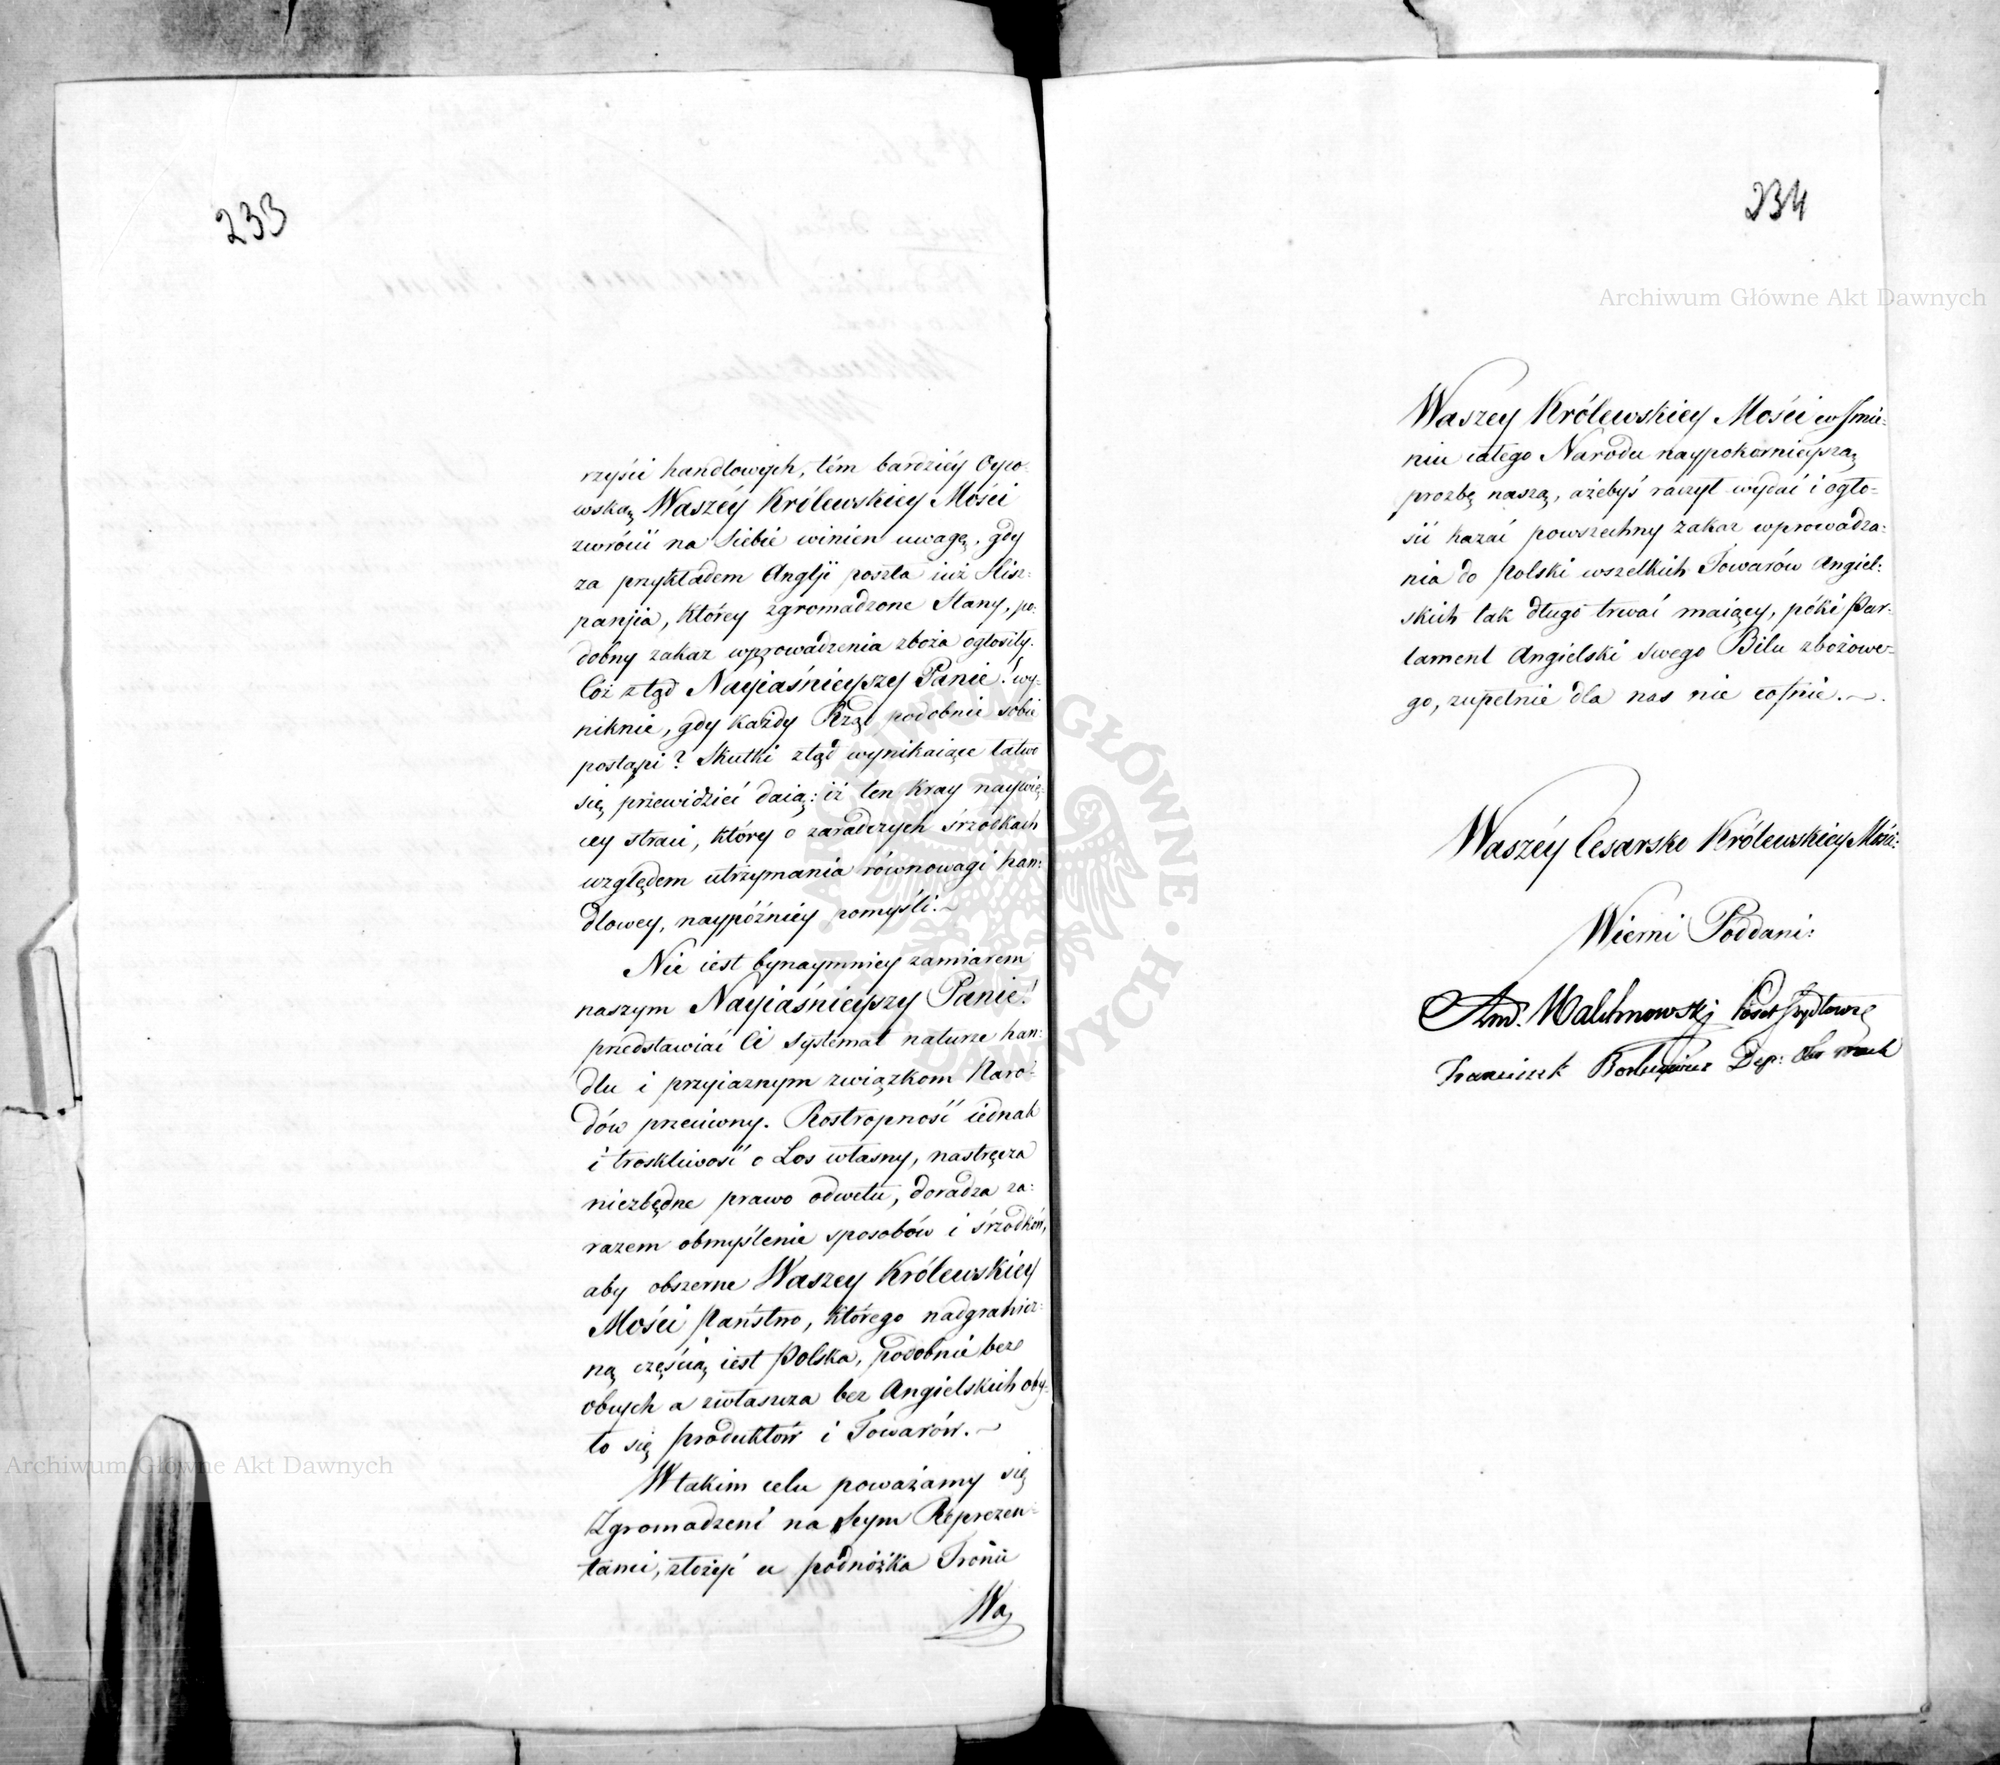 233
rzyści handlowych, tém bardziéy Oyco-
wską Waszéy Królewskiey Mości
zwrócić na Siebie winien uwagę, gdy
za przykładem Anglji poszła iuż Hisz-
panjia, którey zgromadzone Stany, po-
dobny zakaz wprowadzenia zboża ogłosiły.
Cóż ztąd Nayiaśnieyszy Panie! wy-
niknie, gdy każdy Rząd podobnie sobie
postąpi? Skutki ztąd wynikaiące łatwo
się przewidzieć daią: iż ten Kray naywię-
cey straci, który o zaradczych śrzodkach
względem utrzymania równowagi han-
dlowey, naypóźniey pomyśli.
Nie iest bynaymniey zamiarem
naszym Nayiaśnieyszy Panie!
przedstawiać Ci Systemat naturze han-
dlu i przyiaznym związkom Naro-
dów przeciwny. Rostropność iednak
i troskliwość o Los własny, nastręcza
niezbędne prawo odwetu, doradza za-
razem obmyślenie sposobów i śrzodków,
aby obszerne Waszey Królewskiey
Mości Państwo, którego nadgranicz-
ną częścią iest Polska, podobnie bez
obcych a zwłaszcza bez Angielskich oby-
ło się produktów i Towarów.
W takim celu poważamy się
Zgromadzeni na Seym Reprezen-
tanci, złożyć u podnóżka Tronu
Wa
234
Archiwum Główne Akt Dawnych
Waszey Królewskiey Mości w Imie-
niu całego Narodu naypokornieyszą
prozbę naszą, ażebyś raczył wydać i ogło-
sić kazać powszechny zakaz wprowadza-
nia do Polski wszelkich Towarów Angiel-
skich tak długo trwać maiący, póki Par-
lament Angielski swego Bilu zbożowe-
go, zupełnie dla nas nie cofnie.
Waszéy Cesarsko Królewskiey Mości
Wierni Poddani:
And. Walchnowski Poseł Szydłowski
Franciszek Dep:
Archiwum Główne Akt Dawnych
ARCHIWUM GŁÓWNE AKT DAWNYCH